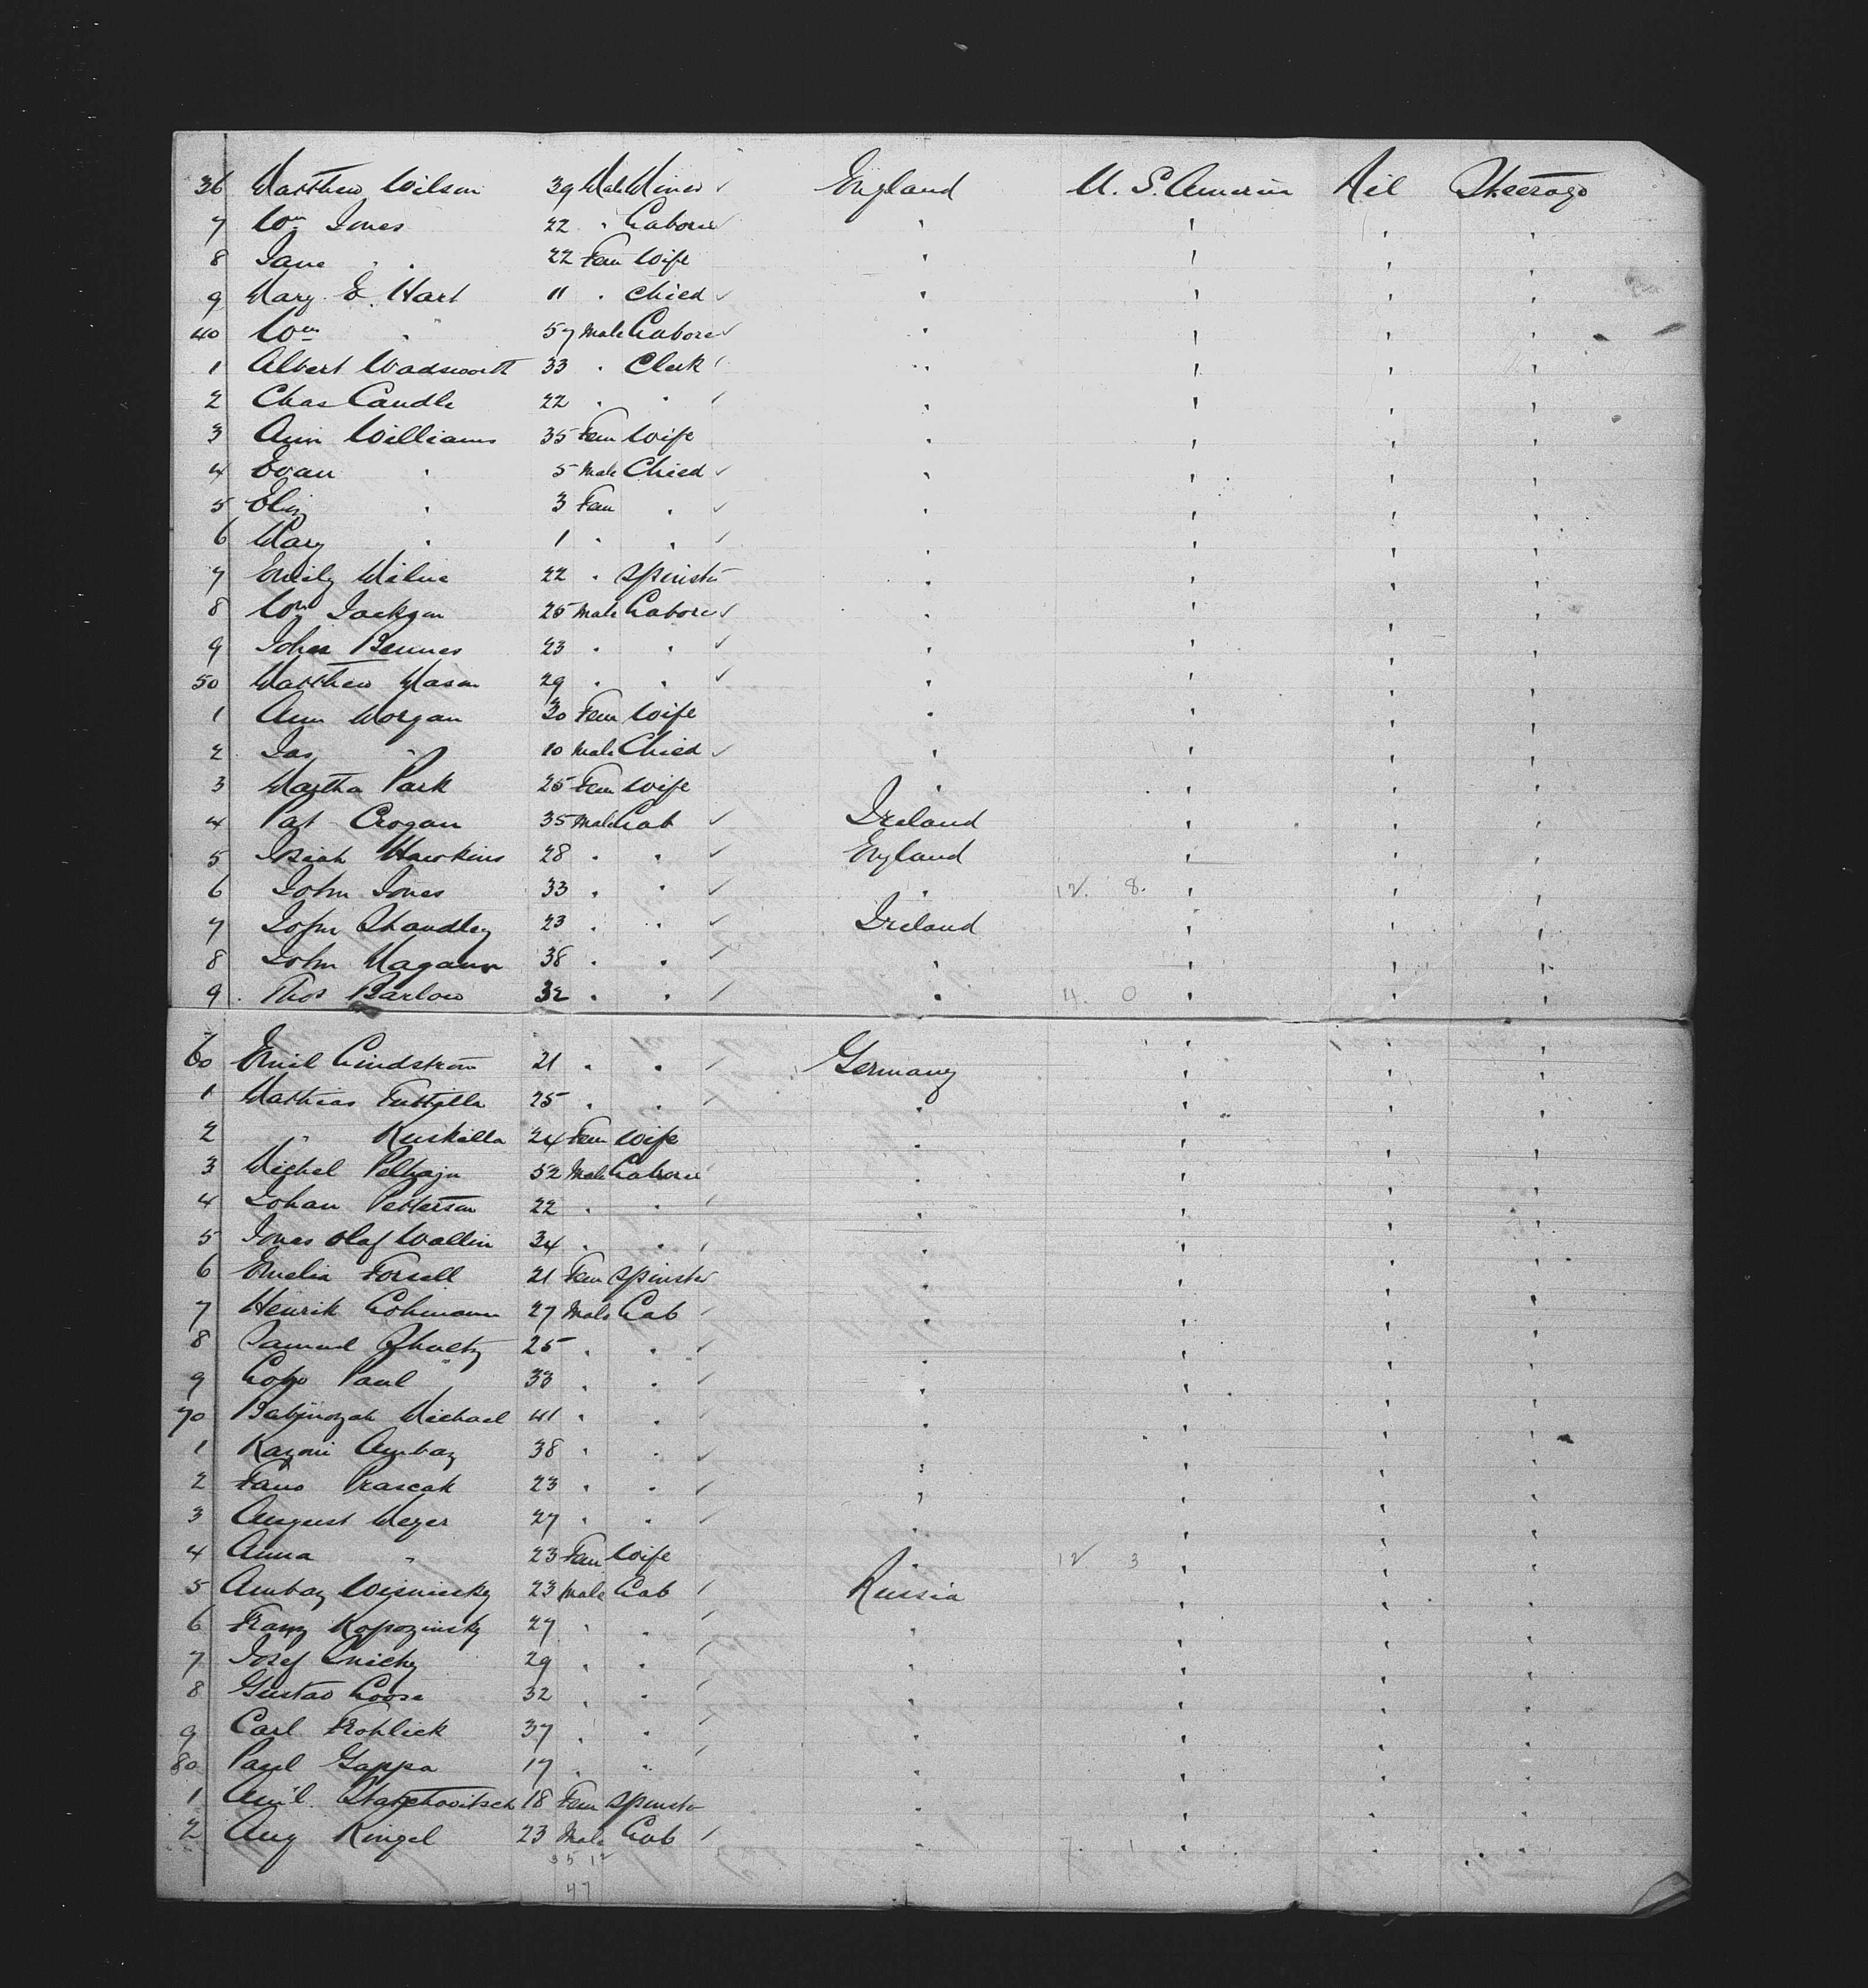 36 Matthew Wilson 39 Male Miner ✓ England U. S. America Nil Steerage
7 Wm Jones 22 " Laborer ✓ " " " "
8 Jane " 22 Fem Wife " " " "
9 Mary E. Hart 11 " Child ✓ " " " "
40 Wm " 57 Male Laborer ✓ " " " "
1 Albert Wadsworth 33 " Clerk ✓ " " " "
2 Chas Caudle 22 " " ✓ " " " "
3 Ann Williams 35 Fem Wife " " " "
4 Evan " 5 Male Child ✓ " " " "
5 Eliz " 3 Fem " ✓ " " " "
6 Mary " 1 " " ✓ " " " "
7 Emily Milne 22 " Spinster " " " "
8 Wm Jackson 25 Male Laborer ✓ " " " "
9 John Bennes 23 " " ✓ " " " "
50 Matthew Mason 29 " " ✓ " " " "
1 Ann Morgan 30 Fem Wife " " " "
2 Jas " 10 Male Child ✓ " " " "
3 Martha Park 25 Fem Wife " " " "
4 Pat Crogan 35 Male Lab ✓ Ireland " " "
5 Isiah Hawkins 28 " " ✓ England " " "
6 John Jones 33 " " ✓ " 12. 8. " " "
7 John Shandley 23 " " ✓ Ireland " " "
8 John Magann 38 " " ✓ " " " "
9 Thos Barlow 32 " " ✓ " 4. 0 " " "
60 Emil Lindstrom 21 " " ✓ Germany " " "
1 Mathias 25 " " ✓ " " " "
2 " Kuskilla 24 Fem Wife " " " "
3 Michel 52 Male Laborer " " " "
4 Johan Petterson 22 " " ✓ " " " "
5 Jonas Olaf Wallin 34 " " ✓ " " " "
6 Emelia Forsell 21 Fem Spinster " " " "
7 Henrik Lohmann 27 Male Lab ✓ " " " "
8 Samuel Shultz 25 " " ✓ " " " "
9 Paul 33 " " ✓ " " " "
70 Michael 41 " " ✓ " " " "
1 38 " " ✓ " " " "
2 Prascak 23 " " ✓ " " " "
3 August Meyer 27 " " ✓ " " " "
4 Anna " 23 Fem Wife " 12 3 " " "
5 Wisniesky 23 Male Lab ✓ Russia " " "
6 Franz Kopozinsky 27 " " ✓ " " " "
7 Josef 29 " " ✓ " " " "
8 Gustav Loose 32 " " ✓ " " " "
9 Carl Frohlick 37 " " ✓ " " " "
80 Paul Gappa 17 " " ✓ " " " "
1 18 Fem Spinster " " " "
2 Aug Ringel 23 Male Lab ✓ " 7 1 " " "
35 12
47